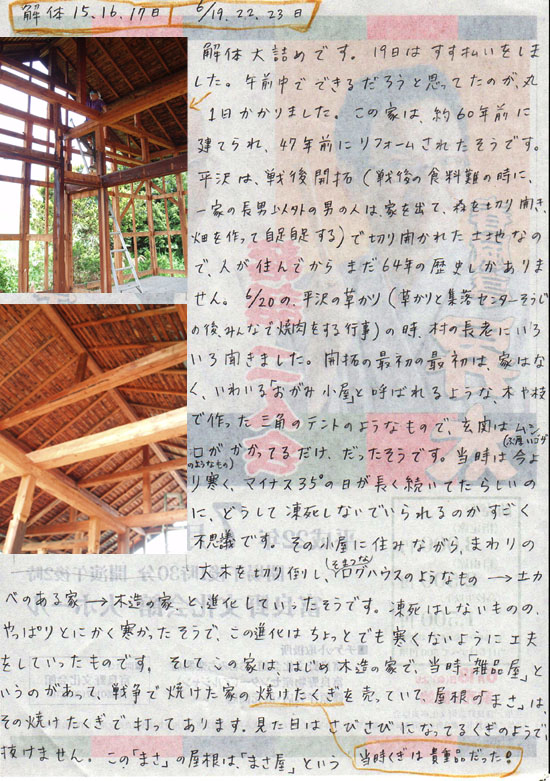 解体 15.16.17日 6/19.22.23日
解体大詰めです。19日はすす払いをしま
した。午前中でできるだろうと思ってたのが、丸
1日かかりました。この家は、約60年前に
建てられ、47年前にリフォームされたそうです。
平沢は、戦後開拓(戦後の食料難の時に、
一家の長男以外の男の人は家を出て、森を切り開き、
畑を作って自足自足する)で切り開かれた土地なの
で、人が住んでから まだ64年の歴史しかありま
せん。6/20の、平沢の草かり(草かりと集落センターそうじ
の後、みんなで焼肉をする行事)の時、村の長老にいろ
いろ聞きました。開拓の最初の最初は、家はな
く、いわいる「おがみ小屋」と呼ばれるような、木や枝
で作った三角のテントのようなもので、玄関はムシ
ロがかかってるだけ、だったそうです。当時は今よ
(ぶ厚いゴザのようなもの)
り寒く、マイナス35°の日が長く続いてたらしいの
に、どうして凍死しないでいられるのかすごく
不思議です。その小屋に住みながら、まわりの
大木を切り倒し、(そまつな)ログハウスのようなもの → 土カ
ベのある家→木造の家 と進化していったそうです。凍死はしないものの、
やっぱりとにかく寒かったそうで、この進化はちょっとでも寒くないように工夫
をしていったものです。そしてこの家は、はじめ木造の家で、当時「雑品屋」と
いうのがあって、戦争で焼けた家の焼けたくぎを売っていて屋根の「まさ」は、
その焼けたくぎで打ってあります。見た目はさびさびになってるくぎのようで、
抜けません。この「まさ」の屋根は、「まさ屋」という
当時くぎは貴重品だった!